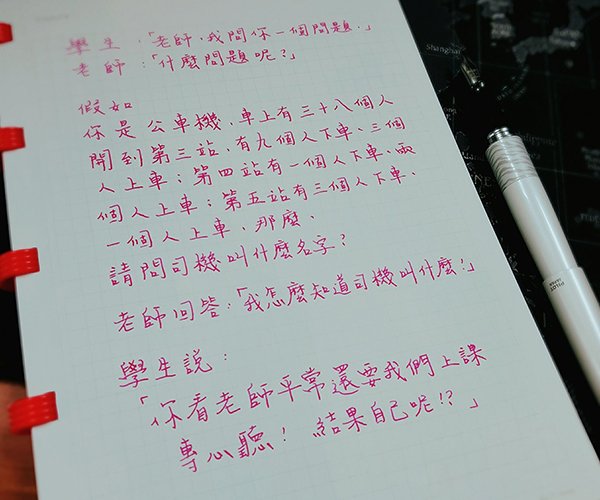 學生:「老師,我問你一個問題.」
老師:「什麼問題呢?」
假如
你是公車機,車上有三十八個人
開到第三站,有九個人下車、三個
人上車;第四站有一個人下車、兩
個人上車;第五站有三個人下車、
一個人上車,那麼、
請問司機叫什麼名字?
老師回答:「我怎麼知道司機叫什麼!」
學生說:
「你看老師平常還要我們上課
專心聽!結果自己呢!?」
Shanghai
PILOT